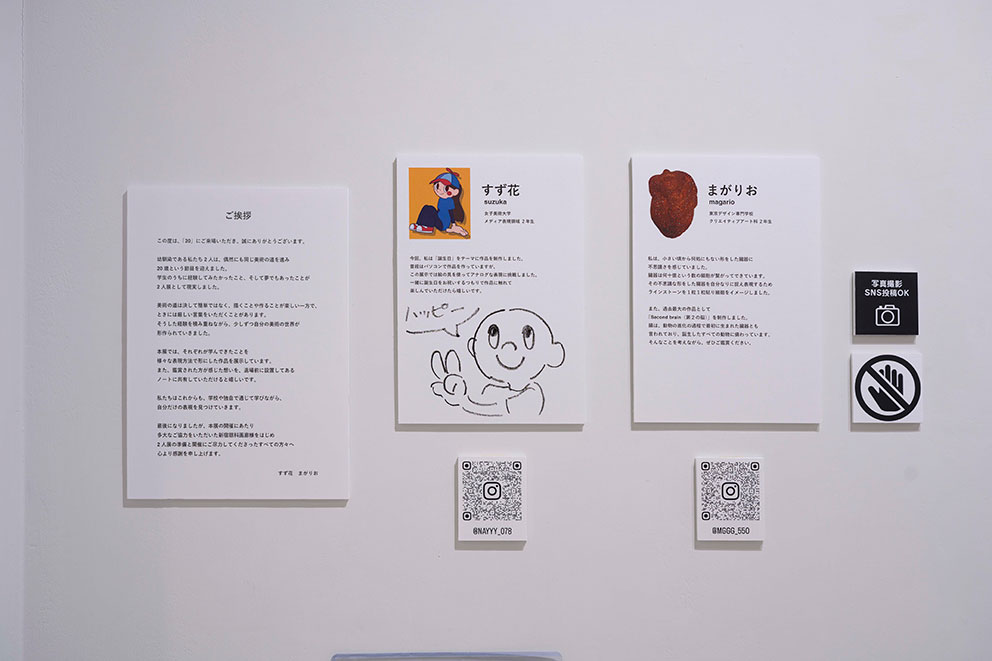 ご挨拶
この度は、「20」にご来場いただき、誠にありがとうございます。
幼馴染である私たち2人は、偶然にも同じ美術の道を進み
20歳という節目を迎えました。
学生のうちに経験してみたかったこと、そして夢でもあったことが
2人展として現実しました。
美術の道は決して簡単ではなく、描くことや作ることが楽しい一方で、
ときには厳しい言葉をいただくことがあります。
そうした経験を積み重ねながら、少しずつ自分の美術の世界が
形作られていきました。
本展では、それぞれが学んできたことを
様々な表現方法で形にした作品を展示しています。
また、鑑賞された方が感じた想いを、道場前に設置してある
ノートに共有していただけると嬉しいです。
私たちはこれからも、学校や独自で通じて学びながら、
自分だけの表現を見つけていきます。
最後になりましたが、本展の開催にあたり
多大なご協力をいただいた新宿眼科画廊様をはじめ
2人展の準備と開催にご尽力してくださったすべての方々へ
心より感謝を申し上げます。
すず花 まがりお
すず花
suzuka
女子美術大学
メディア表現領域 2年生
今回、私は「誕生日」をテーマに作品を制作しました。
普段はパソコンで作品を作っていますが、
この展示では絵の具を使ってアナログな表現に挑戦しました。
一緒に誕生日をお祝いするつもりで作品に触れて
楽しんでいただけたら嬉しいです。
ハッピー
@NAYYY_078
まがりお
magario
東京デザイン専門学校
クリエイティブアート科 2年生
私は、小さい頃から何処にもない形をした臓器に
不思議さを感じていました。
臓器は何十億という数の細胞が繋がってできています。
その不思議な形をした臓器を自分なりに捉え表現するため
ラインストーンを1粒1粒貼り細胞をイメージしました。
また、過去最大の作品として
「Second brain（第2の脳）」を制作しました。
腸は、動物の進化の過程で最初に生まれた臓器とも
言われており、誕生したすべての動物に備わっています。
そんなことを考えながら、ぜひご鑑賞ください。
@MGGG_550
写真撮影
SNS投稿OK